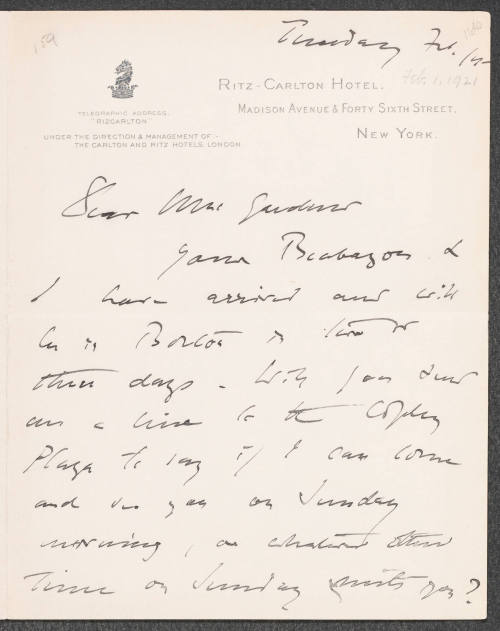 159
Tuesday Feb. 1st
Feb. 1, 1921
RITZ-CARLTON HOTEL.
MADISON AVENUE & FORTY SIXTH STREET.
NEW YORK.
TELEGRAPHIC ADDRESS,
"RIZCARLTON"
UNDER THE DIRECTION & MANAGEMENT OF:-
THE CARLTON AND RITZ HOTELS, LONDON.
Dear Mrs Gardner
Your Brabazon &
I have arrived and will
be in Boston in two or
three days - Will you send
me a line to the Copley
Plaza to say if I can come
and see you on Sunday
morning, or whatever other
time on Sunday suits you?